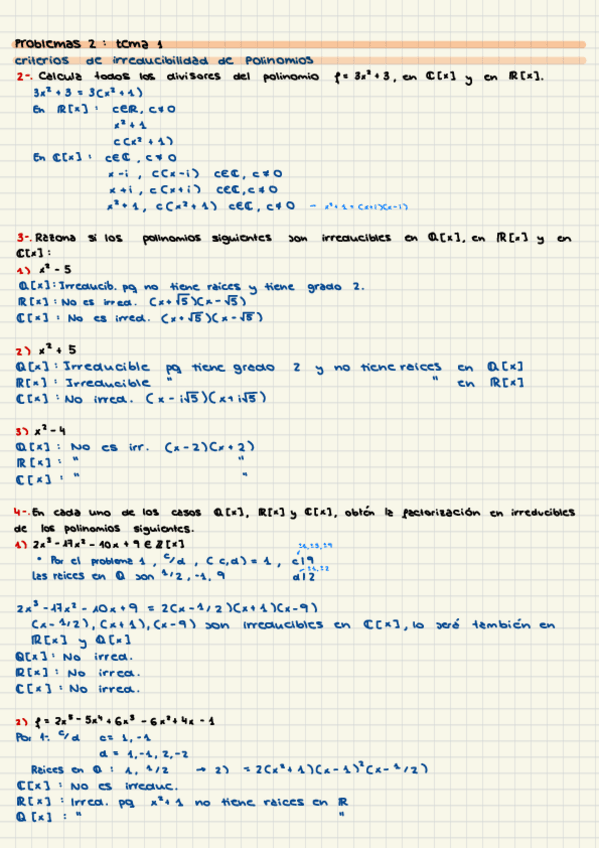 Problemas 2 : tema 1
criterios de irreducibilidad de Polinomios
2-. Calcula todos los divisores del polinomio f = 3x² + 3, en C[x] y en R[x].
3x² + 3 = 3(x² + 1)
En R[x] : c∈R, c ≠ 0
x² + 1
c(x² + 1)
En C[x] : c∈C, c ≠ 0
x - i , c(x - i) c∈C, c ≠ 0
x + i , c(x + i) c∈C, c ≠ 0
x² + 1 , c(x² + 1) c∈C, c ≠ 0 - x² + 1 = (x+i)(x-i)
3-. Razona si los polinomios siguientes son irreducibles en Q[x], en R[x] y en
C[x] :
1) x² - 5
Q[x] : Irreducib. pq no tiene raíces y tiene grado 2.
R[x] : No es irred. (x + √5)(x - √5)
C[x] : No es irred. (x + √5)(x - √5)
2) x² + 5
Q[x] : Irreducible pq tiene grado 2 y no tiene raíces en Q[x]
R[x] : Irreducible " " en R[x]
C[x] : No irred. (x - i√5)(x + i√5)
3) x² - 4
Q[x] : No es irr. (x - 2)(x + 2)
R[x] : " "
C[x] : " "
4-. En cada uno de los casos Q[x], R[x] y C[x], obtén la factorización en irreducibles
de los polinomios siguientes.
1) 2x³ - 17x² - 10x + 9 ∈ Z[x]
* Por el problema 1 , c/d , (c,d) = 1 , c|9 ±1, ±3, ±9
Las raíces en Q son 1/2 , -1, 9 d|2 ±1, ±2
2x³ - 17x² - 10x + 9 = 2(x - 1/2)(x + 1)(x - 9)
(x - 1/2), (x + 1), (x - 9) son irreducibles en C[x], lo será también en
R[x] y Q[x]
Q[x] : No irred.
R[x] : No irred.
C[x] : No irred.
2) f = 2x⁵ - 5x⁴ + 6x³ - 6x² + 4x - 1
Por 1: c/d c = 1, -1
d = 1, -1, 2, -2
Raíces en Q : 1, 1/2 → 2) = 2(x² + 1)(x - 1)²(x - 1/2)
C[x] : No es irreduc.
R[x] : Irred. pq x² + 1 no tiene raíces en R
Q[x] : " "